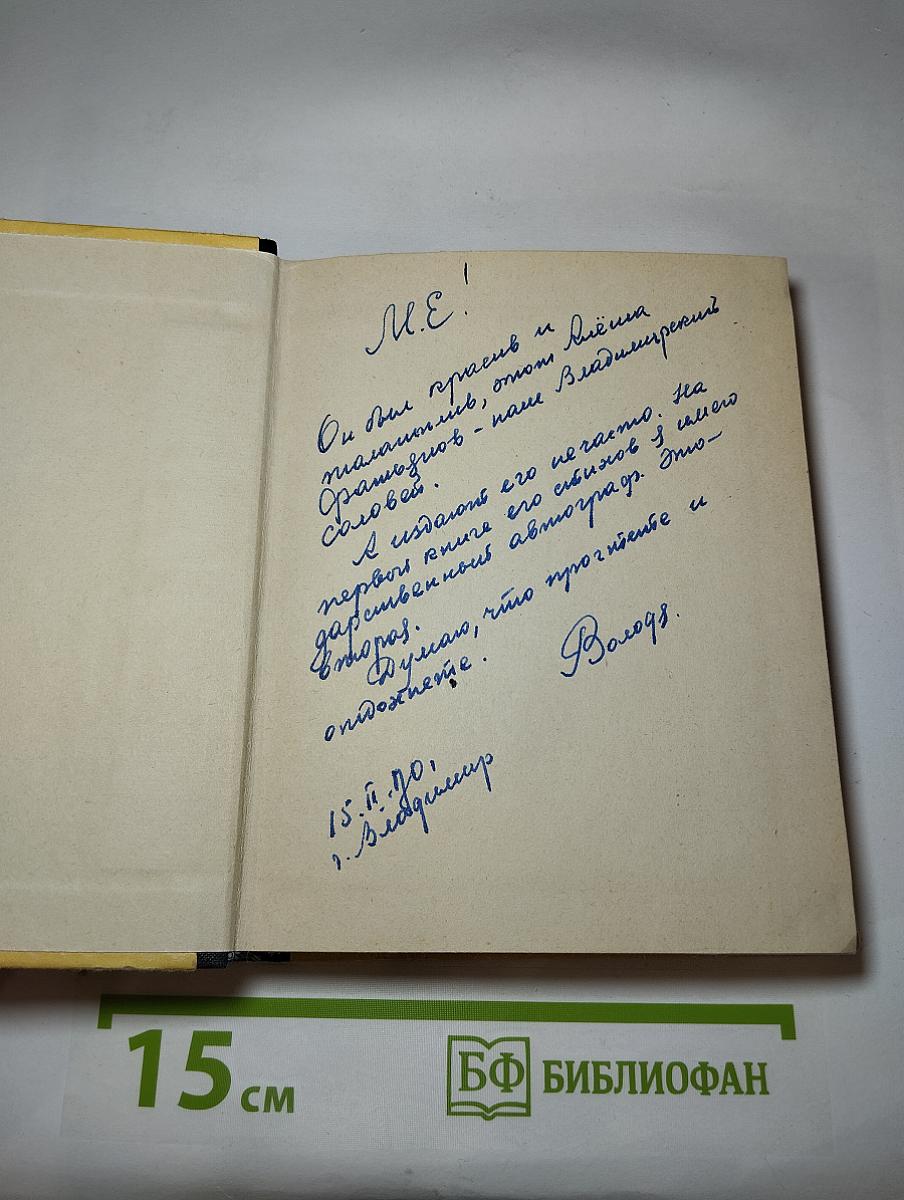 М.Е!
Он был красив и
талантлив, этот Алёша
Фатьянов – наш Владимирский
соловей.
А издают его нечасто. На
первой книге его стихов я имею
дарственный автограф. Это –
вторая.
Думаю, что прочтете и
отдохнете.
Володя.
15.II.70,
г. Владимир
15 см
БФ БИБЛИОФАН